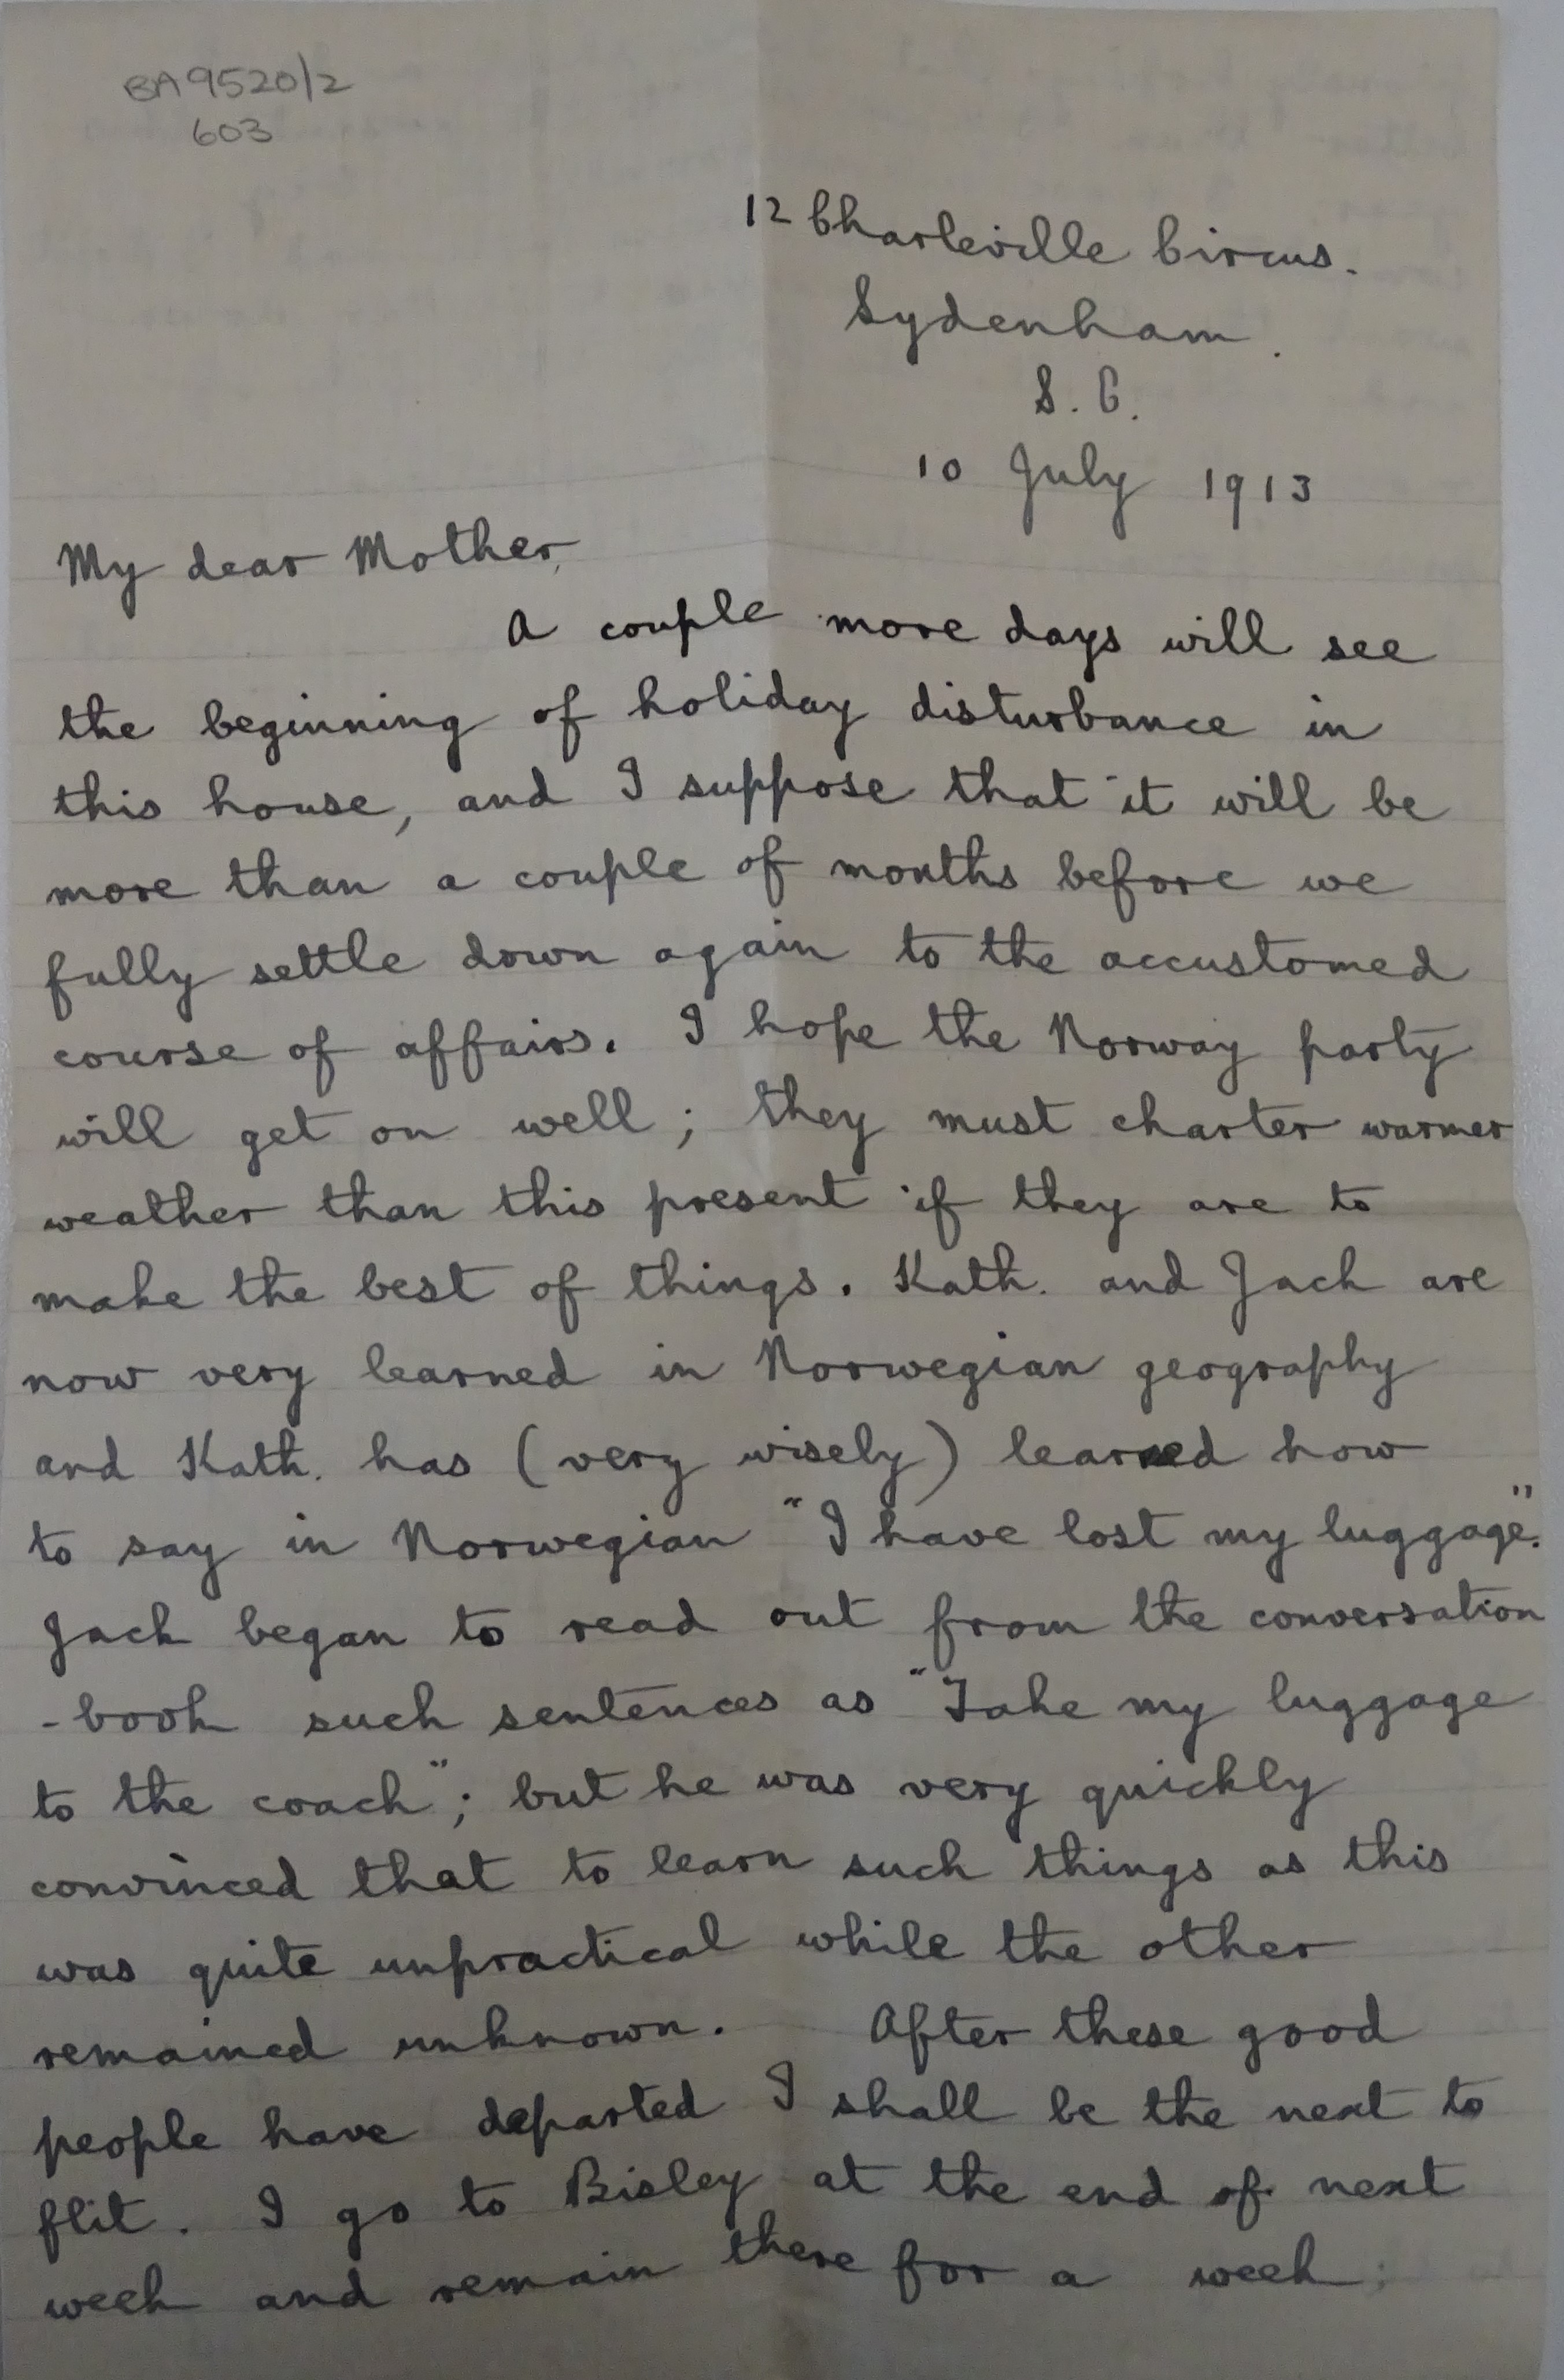 BA9520/2
603
12 Charleville Circus.
Sydenham.
S. E.
10 July 1913
My dear Mother,
A couple more days will see
the beginning of holiday disturbance in
this house, and I suppose that it will be
more than a couple of months before we
fully settle down again to the accustomed
course of affairs. I hope the Norway party
will get on well; they must charter warmer
weather than this present if they are to
make the best of things. Kath. and Jack are
now very learned in Norwegian geography
and Kath. has (very wisely) learned how
to say in Norwegian "I have lost my luggage."
Jack began to read out from the conversation
-book such sentences as "Take my luggage
to the coach"; but he was very quickly
convinced that to learn such things as this
was quite unpractical while the other
remained unknown. After these good
people have departed I shall be the next to
flit. I go to Bisley at the end of next
week and remain there for a week;